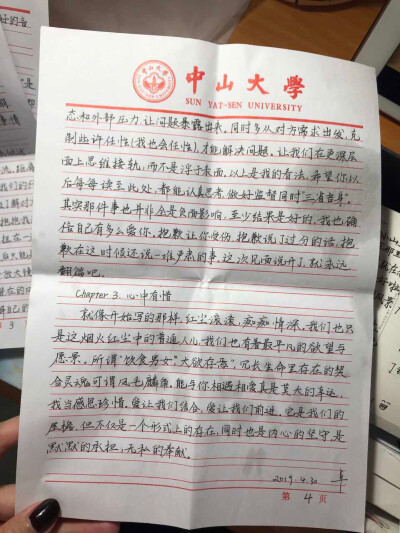 中山大學
SUN YAT-SEN UNIVERSITY
态和外部压力,让问题暴露出来。同时多从对方需求出发,克
制些许任性(我也会任性),才能解决问题。让我们在更深层
面上思维接轨,而不是浮于表面。以上是我的看法,希望你以
后每每读至此处,都能认真思考,做好监督同时“三省吾身”。
其实那件事也并非全是负面影响,至少结果是好的,我也确
信自己有多么爱你,抱歉让你受伤,抱歉说了过分的话,抱
歉在这时候还说一堆严肃的事,这次见面说开了,就永远
翻篇吧。
Chapter 3. 心中有惜
就像开始写的那样,红尘滚滚,痴痴情深。我们也只
是这烟火红尘中的普通人儿,我们也有着最平凡的欲望与
愿景。所谓“饮食男女”“大欲存焉”,冗长生命里存在的契
合灵魂可谓凤毛麟角,能与你相遇相爱真是莫大的幸运,
我当感恩珍惜。爱让我们结合,爱让我们前进,它是我们的
原稿,但不仅是一个形式上的存在,同时也是内心的坚守,是
默默的承担,无私的奉献。
2019.4.30
第 4 页